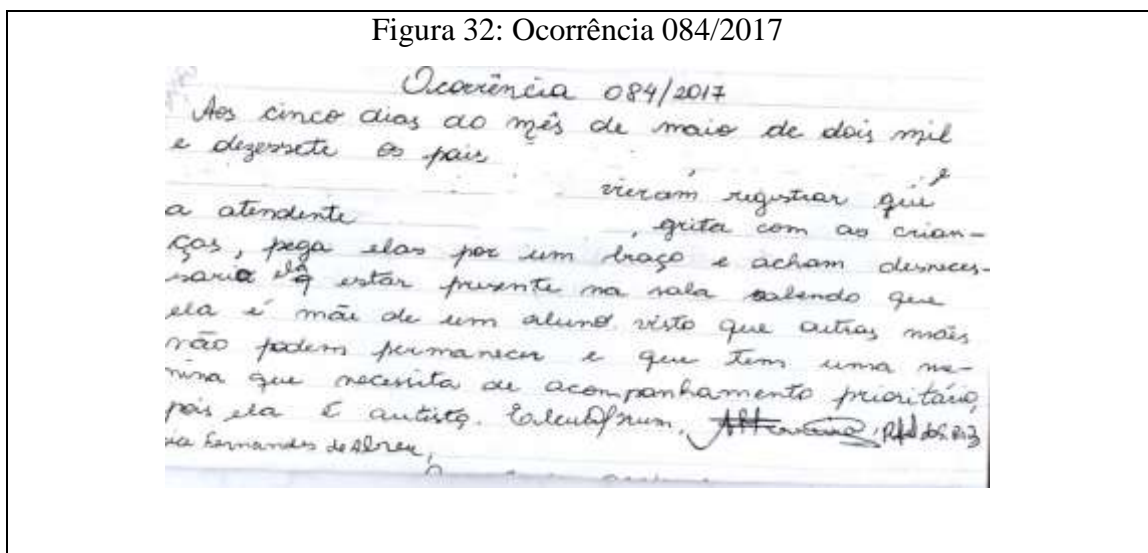 Figura 32: Ocorrência 084/2017
Ocorrência 084/2017
Aos cinco dias do mês de maio de dois mil
e dezessete os pais
vieram registrar que
a atendente , grita com as crian-
ças, pega elas por um braço e acham desneces-
saria ela estar presente na sala sabendo que
ela é mãe de um aluno visto que outras mães
não podem permanecer e que tem uma me-
nina que necessita de acompanhamento prioritário,
pois ela é autista.
Fernandes de Abreu,